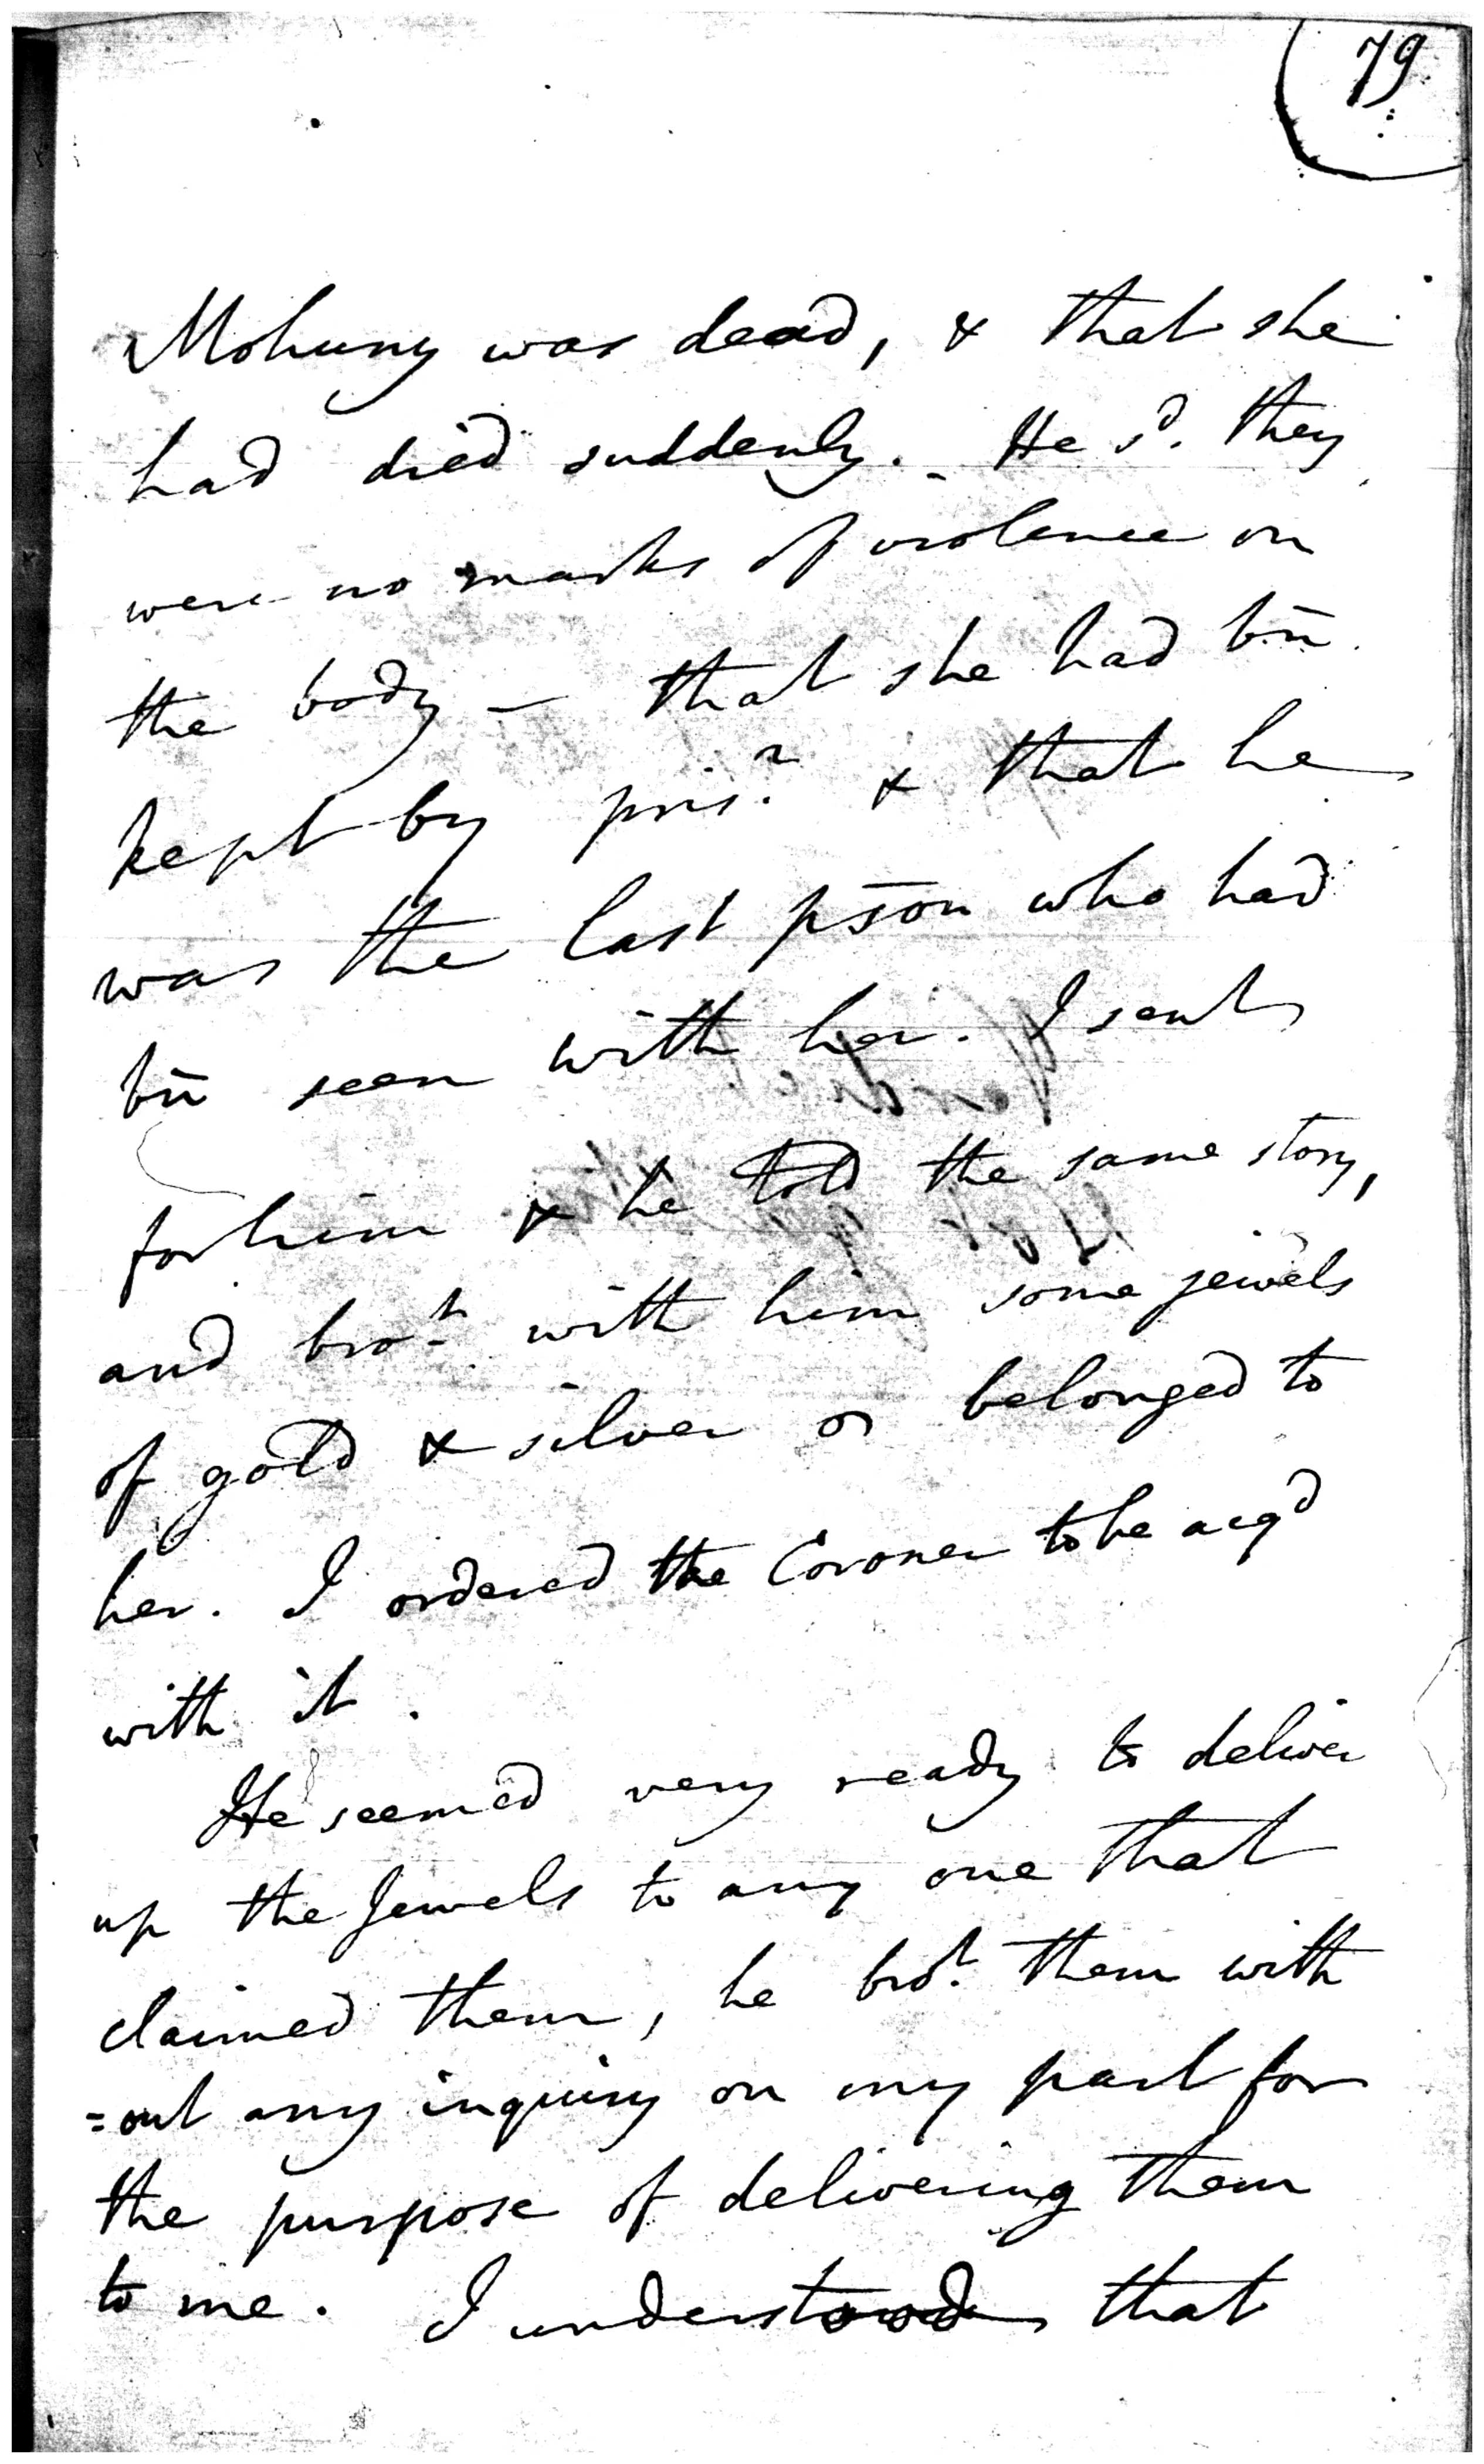 79
Mohuny was dead, & that she
had died suddenly. - He sd. they
were no marks of violence on
the body - that she had bn̄
kept by prisr. & that he
was the last p̄son who had
bn̄ seen with her. I sent
for him & he told the same story,
and brot. with him some jewels
of gold & silver belonged to
her. I ordered the Coroner to be acqd
with it.
He seemed very ready to deliver
up the Jewels to any one that
claimed them, he brot. them with
=out any inquiry on my part for
the purpose of delivering them
to me. I understood that